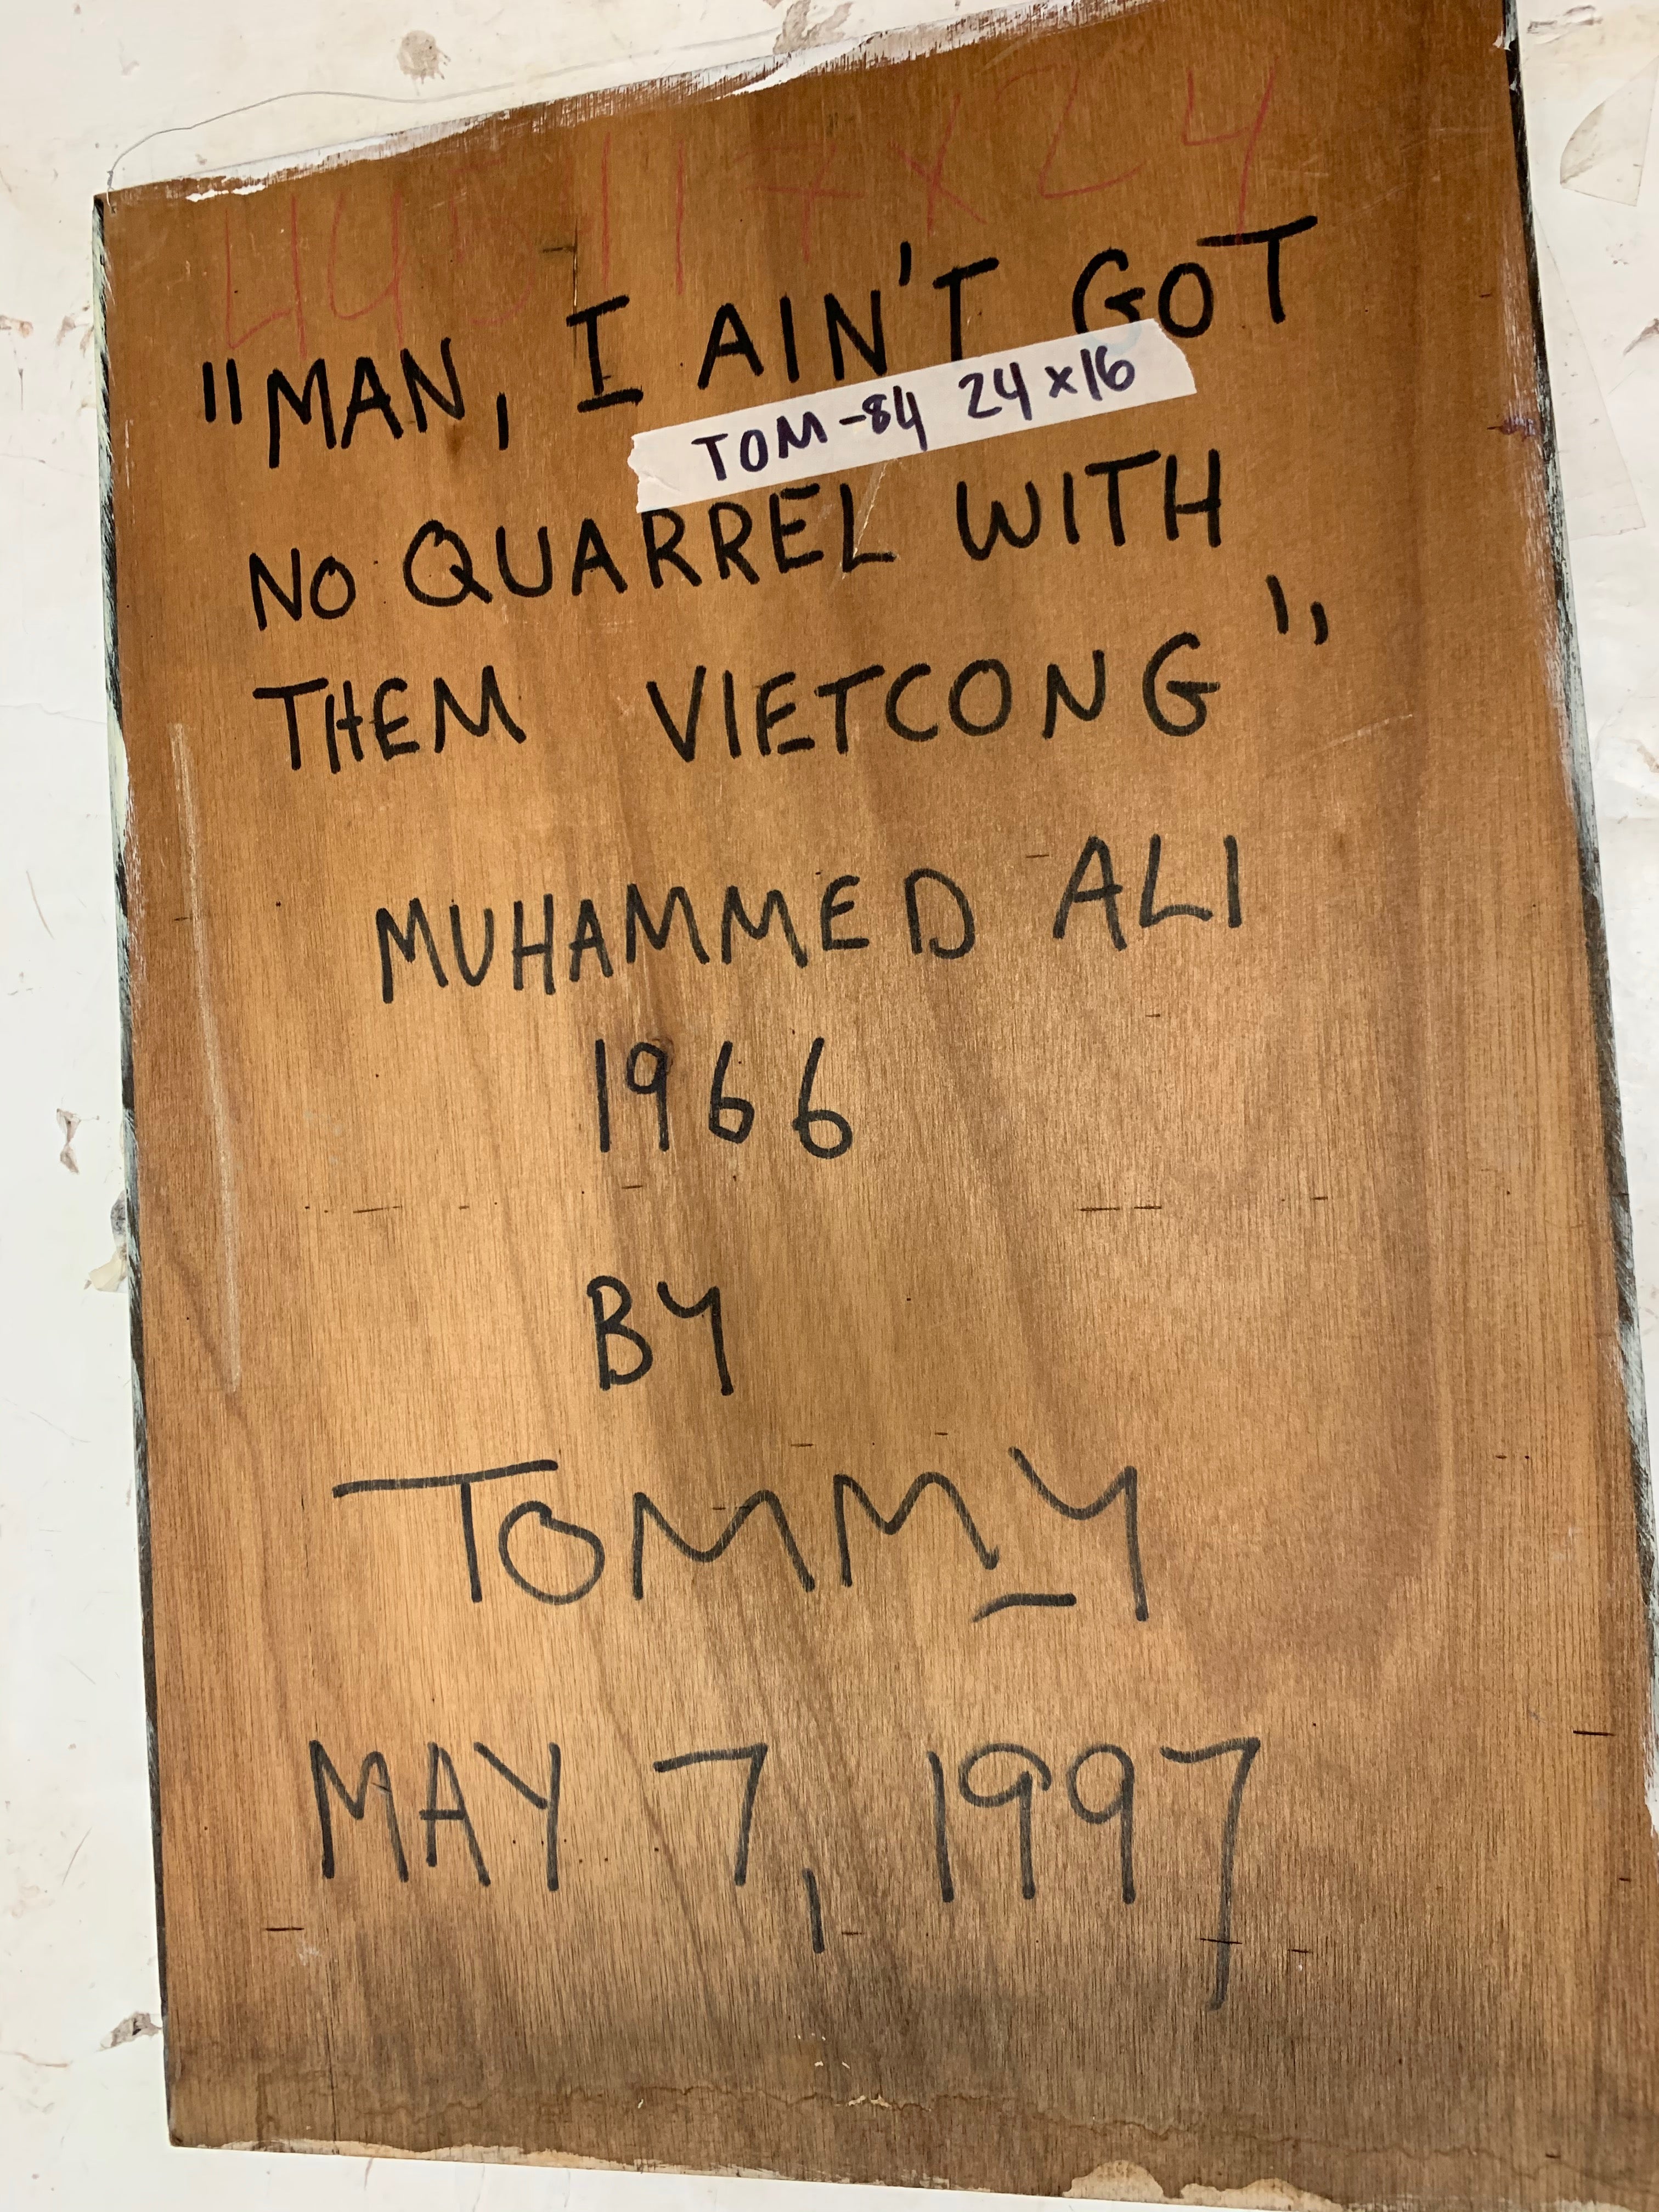 "MAN, I AIN'T GOT
TOM-84 24x16
NO QUARREL WITH
THEM VIETCONG"
MUHAMMED ALI
1966
BY
TOMMY
MAY 7, 1997